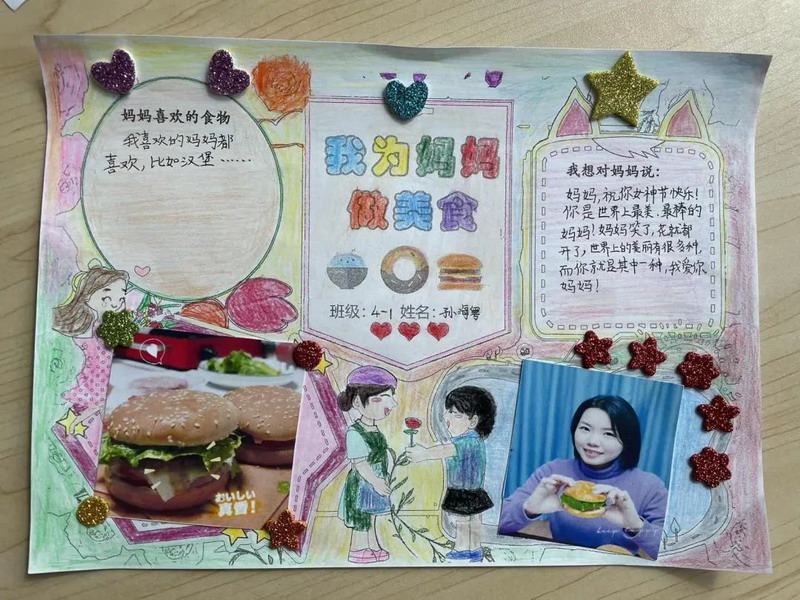 妈妈喜欢的食物
我喜欢的妈妈都
喜欢，比如汉堡……
我为妈妈
做美食
班级：4-1 姓名：孙海
我想对妈妈说：
妈妈，祝你女神节快乐！
你是世界上最美、最棒的
妈妈！妈妈笑了，花就都
开了，世界上的美丽有很多种，
而你就是其中一种，我爱你
妈妈！
おいしい
真香！
keep happy